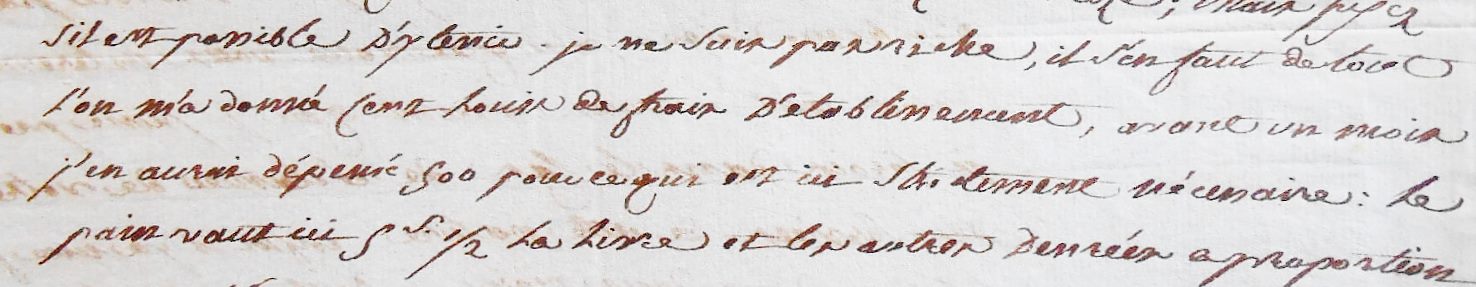 ; mais jugez
s'il est possible d'y tenir. je ne suis pas riche, il s'en faut de tout
l'on m'a donné cent Louis de frais d'etablissement, avant un mois
j'en aurai dépensé 500 pour ce qui est ici strictement nécessaire : le
pain vaut ici 5 s. 1/2 la Livre et les autres denrées a proportion